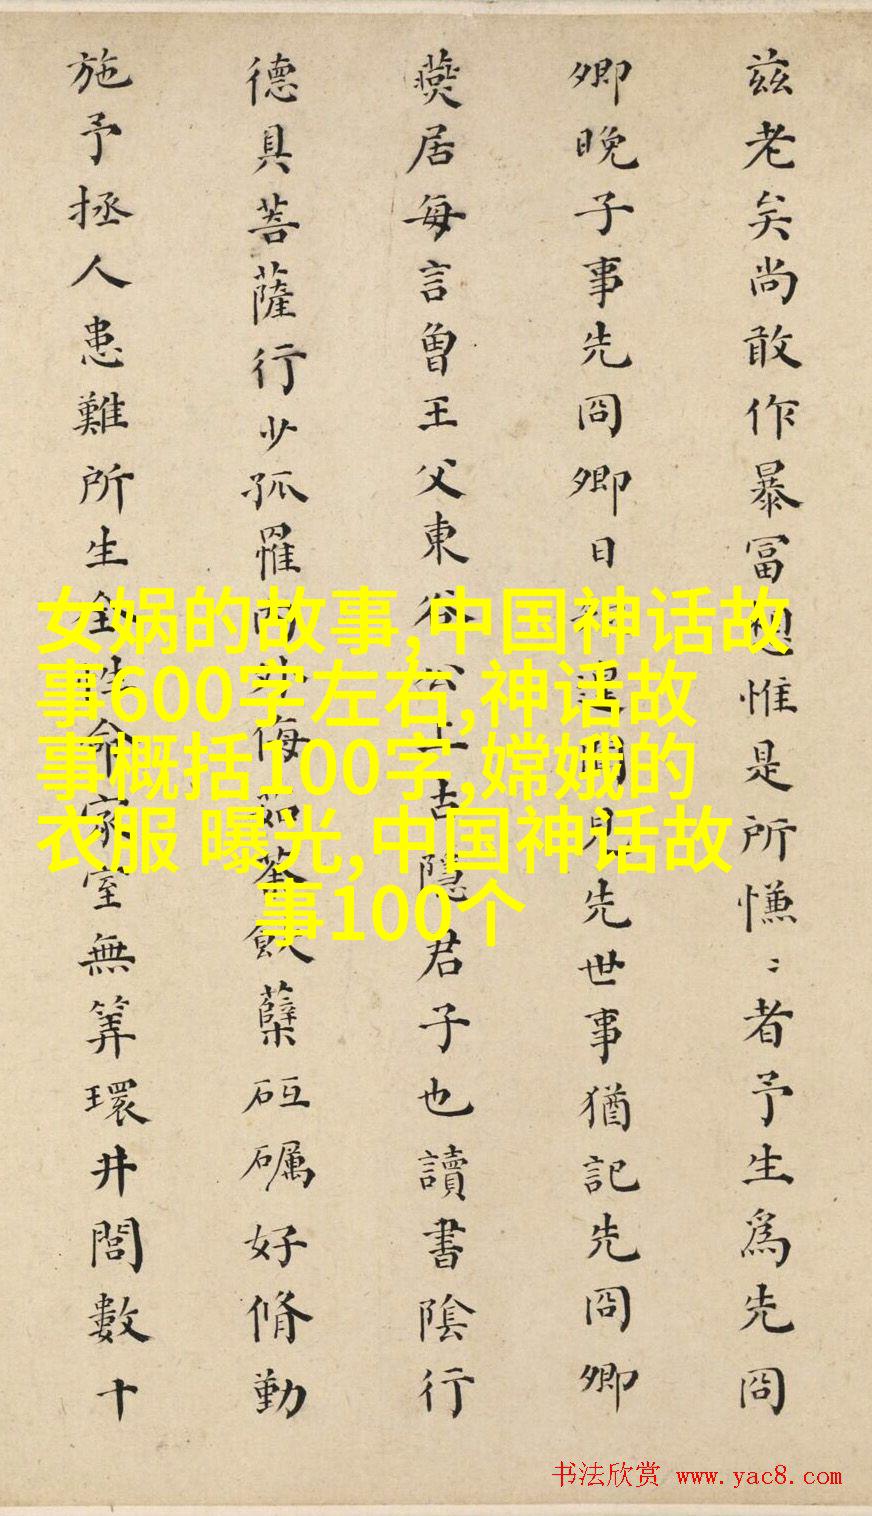 兹老矣尚敢作暴冨想惟是所慊〻者予生為先冏
卿晚子事先冏卿日遑聞見先世事猶記先冏卿
燕居每言曽王父東谷公上古隱君子也讀書陰行
德具菩薩行少孤罹外侮茹荼飲蘗砥礪好脩勤
施予拯人患難所生全性命家室無筭環井閭數十
女娲的故事,中国神话故
事600字左右,神话故
事概括100字,嫦娥的
衣服 曝光,中国神话故
事100个
书法欣赏 www.yac8.com